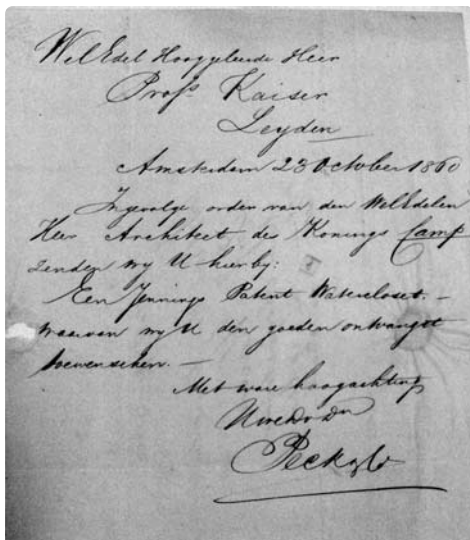 WelEdel Hooggeleerde Heer
Profr. Kaiser
Leyden
Amsterdam 23 October 1860
Ingevolge order van den WelEdelen
Heer Architect des Konings Camp
zenden wy U hierby:
Een Jennings Patent Watercloset. —
waarvan wy U den goeden ontvangst
toewenschen. —
Met ware hoogachting
Uwe Dv Dn
Peck & Co